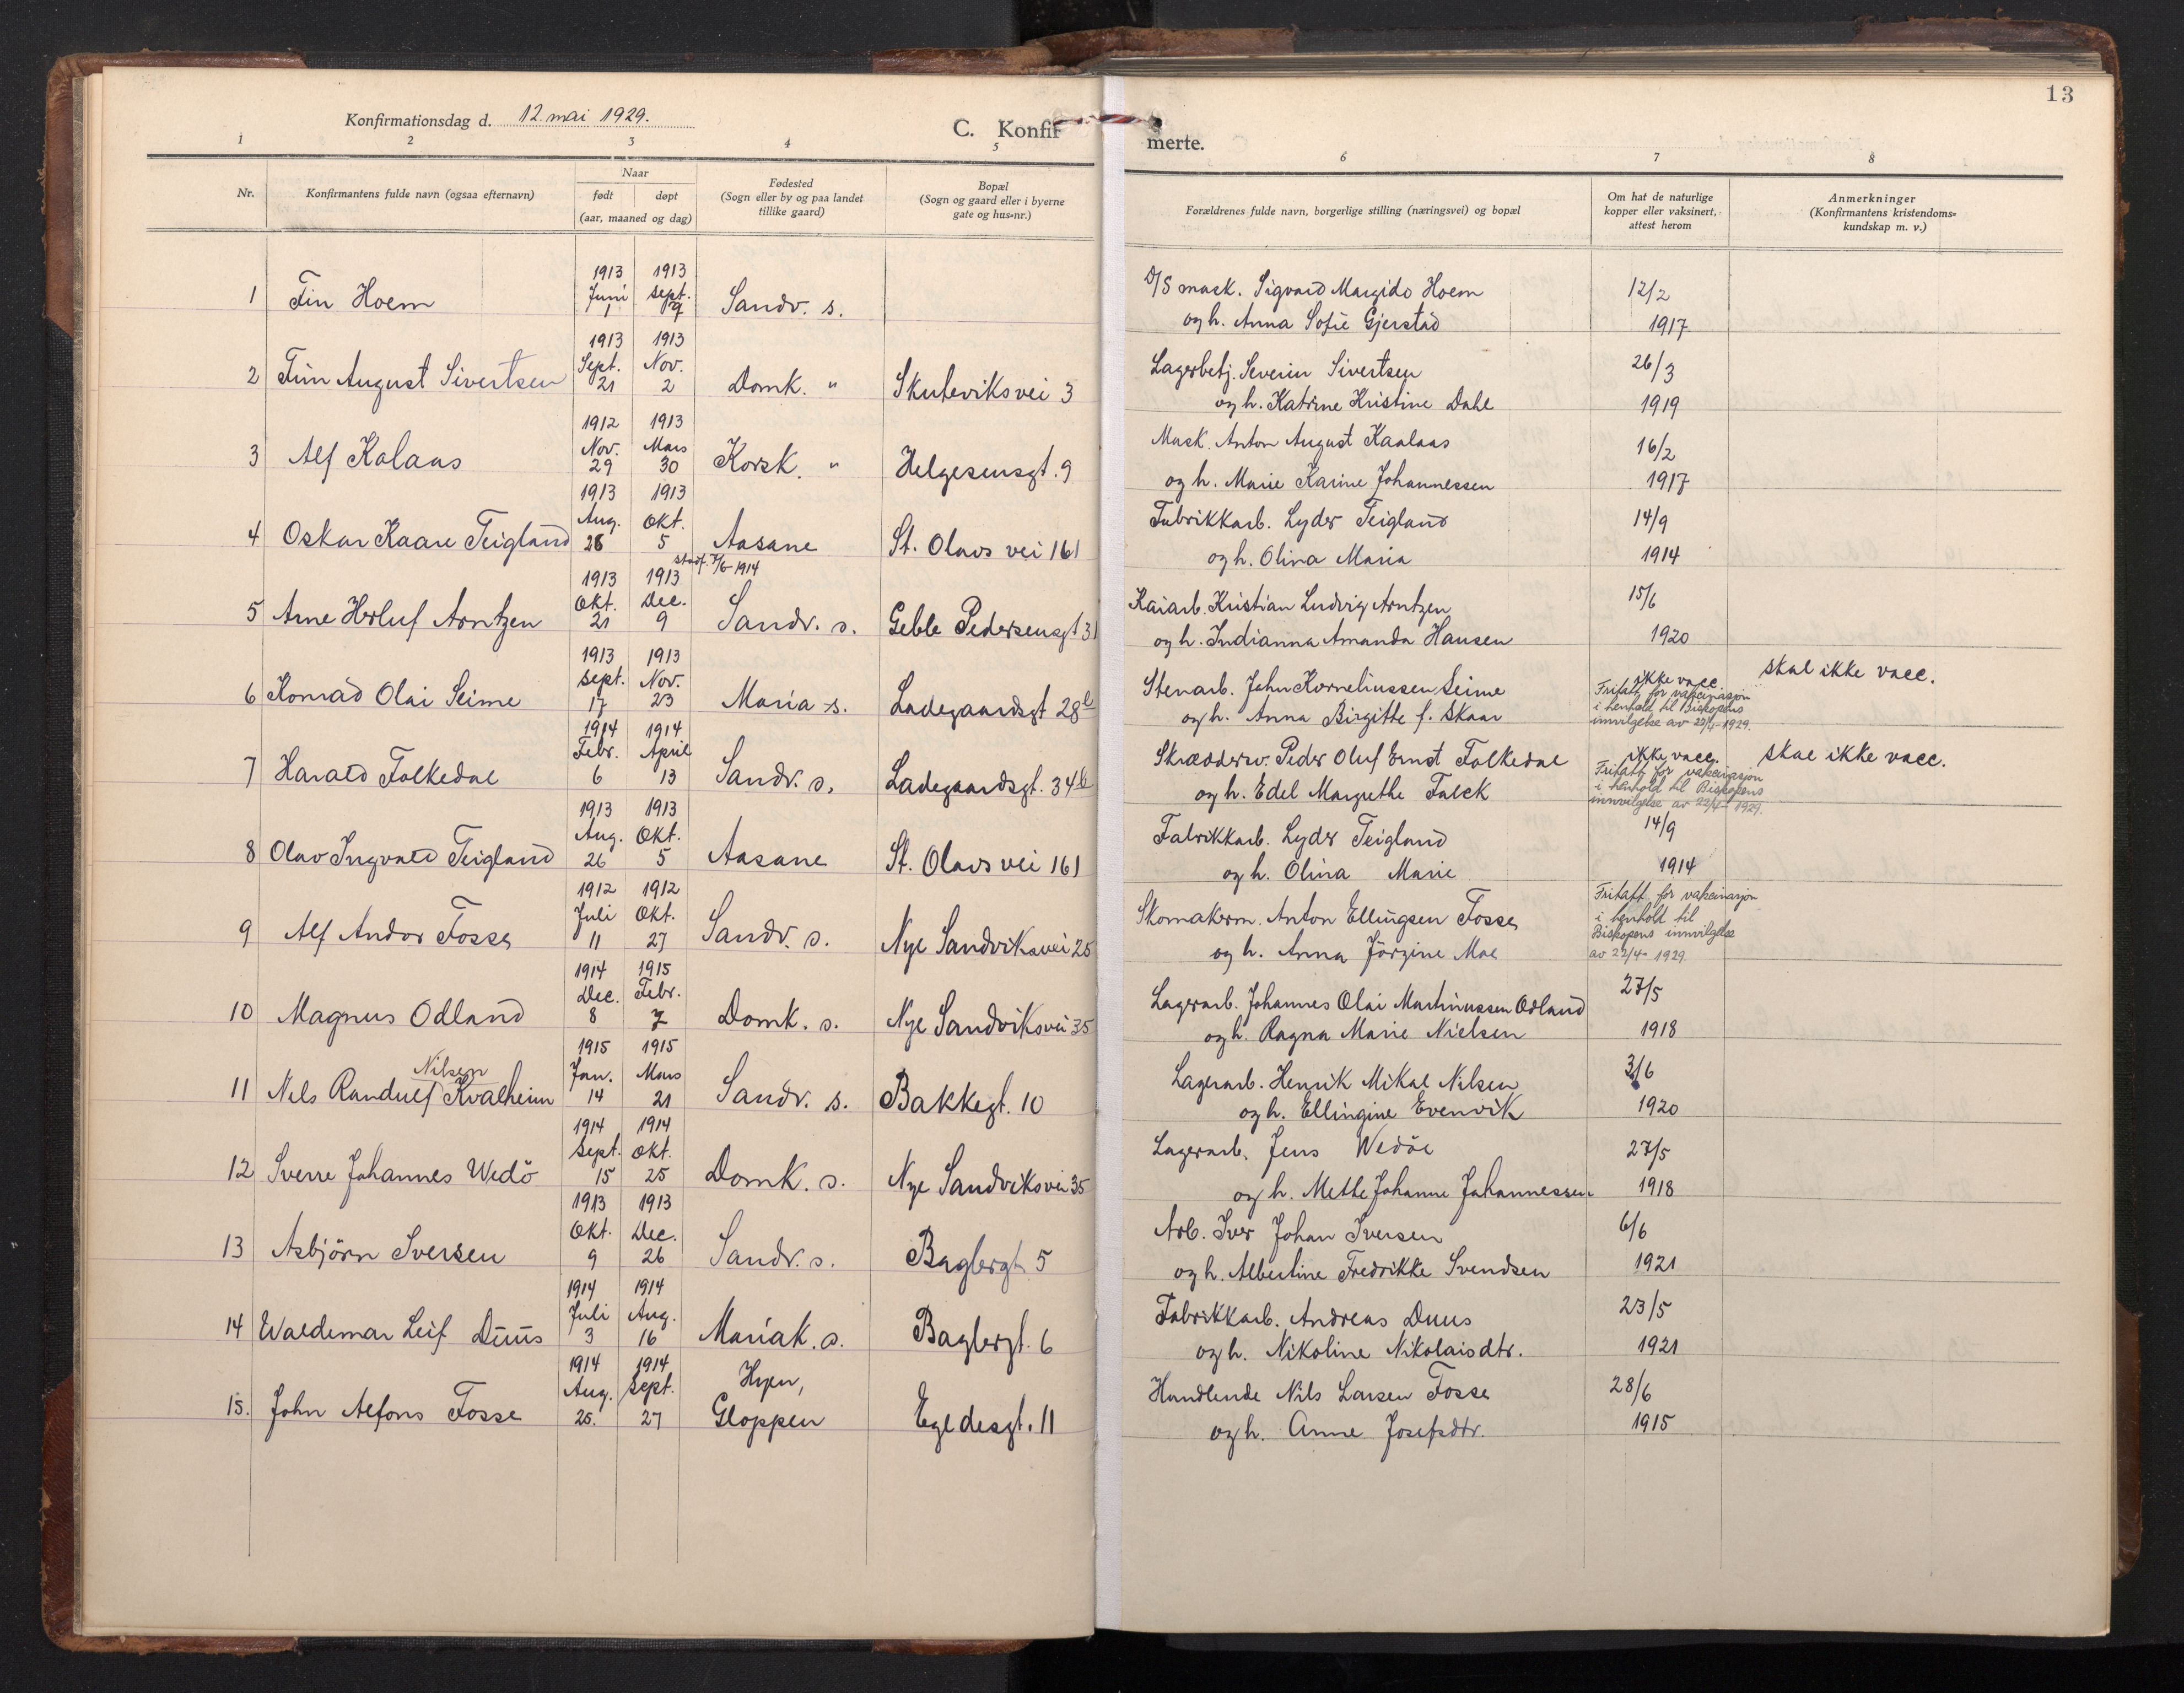 Konfirmationsdag d. 12. mai 1929.
C. Konfirmerte.
13
1 2 3 4 5 6 7 8
Nr.
Konfirmantens fulde navn (ogsaa efternavn)
Naar
født døpt
(aar, maaned og dag)
Fødested
(Sogn eller by og paa landet
tillike gaard)
Bopæl
(Sogn og gaard eller i byerne
gate og hus-nr.)
Forældrenes fulde navn, borgerlige stilling (næringsvei) og bopæl
Om hat de naturlige
kopper eller vaksinert,
attest herom
Anmerkninger
(Konfirmantens kristendoms-
kundskap m. v.)
1913 1913
Juni Sept.
1 Fin Hoem 1 Sandv. s.
D/S mask. Sigvard Margido Hoem 12/2
og h. Anna Sofie Gjerstad 1917
1913 1913
Sept. Nov.
2 Finn August Sivertsen 21 2 Domk. " Skuteviksvei 3
Lagerbetj. Severin Sivertsen 26/3
og h. Katrine Kristine Dahl 1919
1912 1913
Nov. Mars
3 Alf Kalaas 29 30 Korsk. " Helgesensgt. 9
Mask. Anton August Kaalaas 16/2
og h. Marie Karine Johannessen 1917
1913 1913
Aug. Okt.
4 Oskar Kaare Teigland 26 5 Aasane St. Olavs vei 161
Fabrikkarb. Lyder Teigland 14/9
og h. Olina Maria 1914
stadf. 7/6-1914
1913 1913
Okt. Dec.
5 Arne Herluf Arntzen 21 9 Sandv. s. Geble Pedersensgt 31
Kaiarb. Kristian Ludvig Arntzen 15/6
og h. Indianna Amanda Hansen 1920
1913 1913
Sept. Nov.
6 Konrad Olai Seime 17 23 Maria s. Ladegaardsgt 28b
Stenarb. John Korneliussen Seime ikke vacc. skal ikke vacc.
og h. Anna Birgitte f. Skaar
Fritatt for vaksinasjon
i henhold til Biskopens
innvilgelse av 22/4-1929.
1914 1914
Febr. April
7 Harald Folkedal 6 13 Sandv. s. Ladegaardsgt. 34b
Skræddersv. Peder Oluf Ernst Folkedal ikke vacc. skal ikke vacc.
og h. Edel Margrethe Falck
Fritatt for vaksinasjon
i henhold til Biskopens
innvilgelse av 22/4-1929.
1913 1913
Aug. Okt.
8 Olav Ingvald Teigland 26 5 Aasane St. Olavs vei 161
Fabrikkarb. Lyder Teigland 14/9
og h. Olina Marie 1914
1912 1912
Juli Okt.
9 Alf Andor Fosse 11 27 Sandv. s. Nye Sandviksvei 25
Skomakerm. Anton Ellingsen Fosse
og h. Anna Jörgine Moe
Fritatt for vaksinasjon
i henhold til
Biskopens innvilgelse
av 22/4-1929
1914 1915
Dec. Febr.
10 Magnus Odland 8 7 Domk. s. Nye Sandviksvei 35
Lagerarb. Johannes Olai Martinussen Odland 27/5
og h. Ragna Marie Nielsen 1918
1915 1915
Jan. Mars
Nilsen
11 Nils Randulf Kvalheim 14 21 Sandv. s. Bakkegt. 10
Lagerarb. Henrik Mikal Nilsen 3/6
og h. Ellingine Evenvik 1920
1914 1914
Sept. Okt.
12 Sverre Johannes Wedö 15 25 Domk. s. Nye Sandviksvei 35
Lagerarb. Jens Wedöe 27/5
og h. Mette Johanne Johannessen 1918
1913 1913
Okt. Dec.
13 Asbjörn Iversen 9 26 Sandv. s. Baglergt. 5
Arb. Iver Johan Iversen 6/6
og h. Albertine Fredrikke Svendsen 1921
1914 1914
Juli Aug.
14 Waldemar Leif Duus 3 16 Mariak. s. Baglergt. 6
Fabrikkarb. Andreas Duus 23/5
og h. Nikoline Nikolaisdtr. 1921
1914 1914
Aug. Sept. Hyen,
15. John Alfons Fosse 25. 27 Gloppen Egedesgt. 11
Handlende Nils Larsen Fosse 28/6
og h. Anne Josefsdtr. 1915